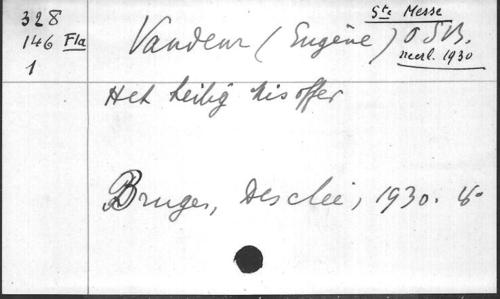 328
146 Fla
1
Ste Messe
Vandeur (Eugène) O.S.B.
neerl. 1930
Het heilig misoffer
Bruges, Desclée, 1930. 16°